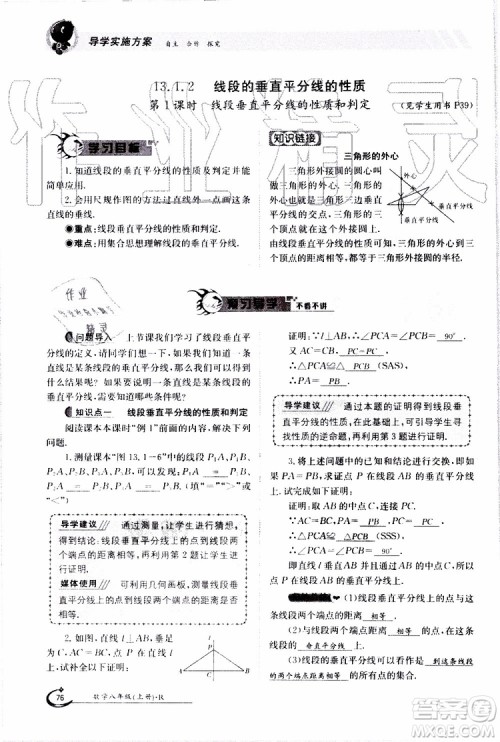 导学实施方案 自主 合作 探究
13.1.2 线段的垂直平分线的性质
第1课时 线段垂直平分线的性质和判定
(见学生用书 P39)
学习目标
1.知道线段的垂直平分线的性质及判定并能
简单应用.
2.会用尺规作图的方法过直线外一点画这条
直线的垂线.
●重点:线段的垂直平分线的性质及判定.
●难点:用集合思想理解线段的垂直平分线.
知识链接
三角形的外心
三角形外接圆的圆心叫
做三角形的外心,三角形
的外心是三角形三边垂
直平分线的交点,它到三
个顶点的距离相等.
外心
垂直平分线
顶点
由线段的垂直平分线的性质可知,三角形的外心
到三角形三个顶点的距离都是相等的.
预习导学 不看不讲
问题导入 上节课我们学习了线段垂直平
分线的定义,请大家想一想,如果知道一条
直线是某条线段的垂直平分线,能得到什么
结果呢?如果需要知道某条直线是某条线段
的垂直平分线,需要知道什么呢?
知识点一 线段垂直平分线的性质和判定
阅读课本本课时“例1”前面的内容,回答下列
问题.
1.测量课本“图13.1-6”中的线段P₁A、P₁B、
P₂A、P₂B、P₃A、P₃B的长度,可以发现,
P₁A = P₁B,P₂A = P₂B,
P₃A = P₃B.(填“=”“>”或
“<”)
导学建议 通过测量,让学生进行猜
想结论,再利用第2题让学生进行证明.
媒体使用 可利用几何画板,测量线段垂
直平分线上的点到两个端点的线段的长度.
2.如图,直线l⊥AB,垂足
为C,AC=CB,点P在l
上,试补全以下证明:
证明:
∵l⊥AB,∴∠PCA=∠PCB= 90° .
又∵AC=CB,PC= PC ,
∴△PCA≌△PCB (SAS).
∴PA= PB .
导学建议 通过本题的证明得到线段垂
直平分线的性质后,有能力的班级,可引导学生寻
找这个性质的逆命题,再利用第3题进行证明.
3.将上述问题中的已知和结论进行互换,即如
果PA=PB,求证点P在线段AB的垂直平分线
上.试完成如下证明:
证明:取AB的中点C,连接PC.
∵PA= PB ,PC= PC ,
AC= BC ,
∴△PCA≌△PCB (SSS).
∴∠PCA= ∠PCB = 90° .
∵直线PC⊥AB,且点C是AB的中点,
∴点P在线段AB的垂直平分线上.
(1)线段垂直平分线上的点与这
条线段两个端点的距离 相等 .
(2)与一条线段两个端点距离相等的点,在这
条线段的 垂直平分线 上.
76 数学八年级(上册)·R